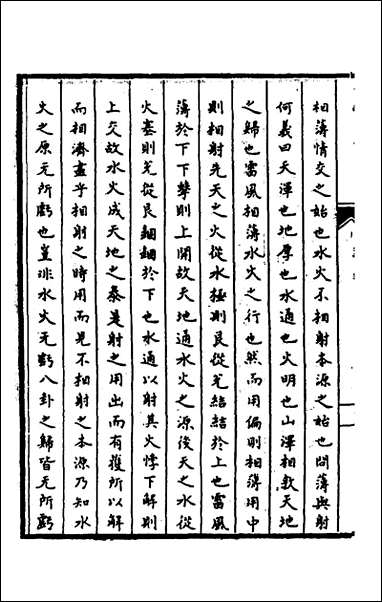 相薄情交之始也水火不相射本源之始也問薄與射
何義曰天渾也地厚也水通也火明也山澤相欵天地
之歸也雷風相薄水火之行也然而用偏則相薄用中
則相射先天之火從水極則艮從兌結結於上也雷風
薄於下下孽則上開故天地通水火之源後天之水從
火塞則兌從艮絪絪於下也水通以射其火悖下解則
上交故水火成天地之泰是射之用出而有獲所以解
而相濟盡乎相射之時用而見不相射之本源乃知水
火之原无所虧也豈非水火无虧八卦之歸皆无所虧